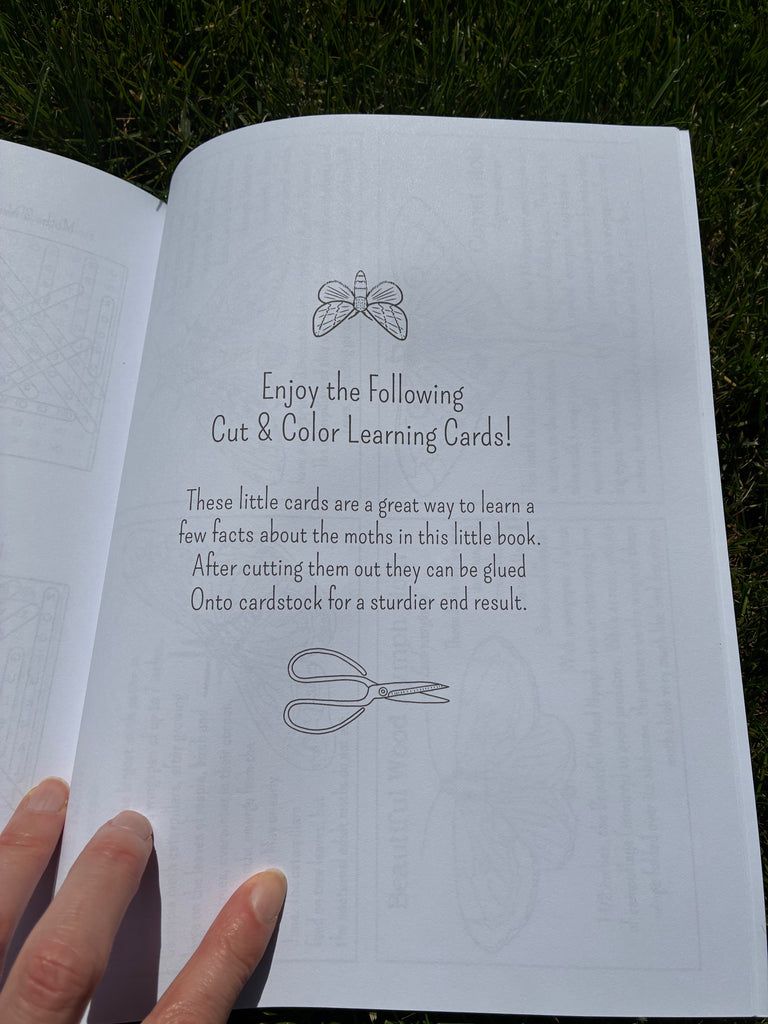 Enjoy the Following
Cut & Color Learning Cards!
These little cards are a great way to learn a
few facts about the moths in this little book.
After cutting them out they can be glued
Onto cardstock for a sturdier end result.
Beautiful Wood